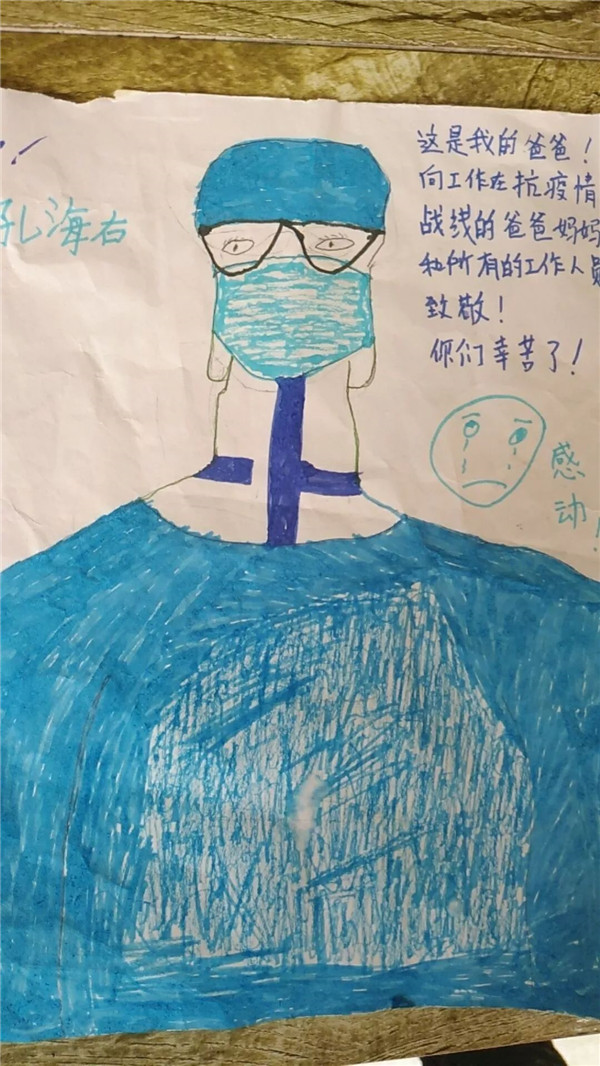 孔海右
这是我的爸爸！
向工作在抗疫情
战线的爸爸妈妈
和所有的工作人员
致敬！
你们幸苦了！
感
动！